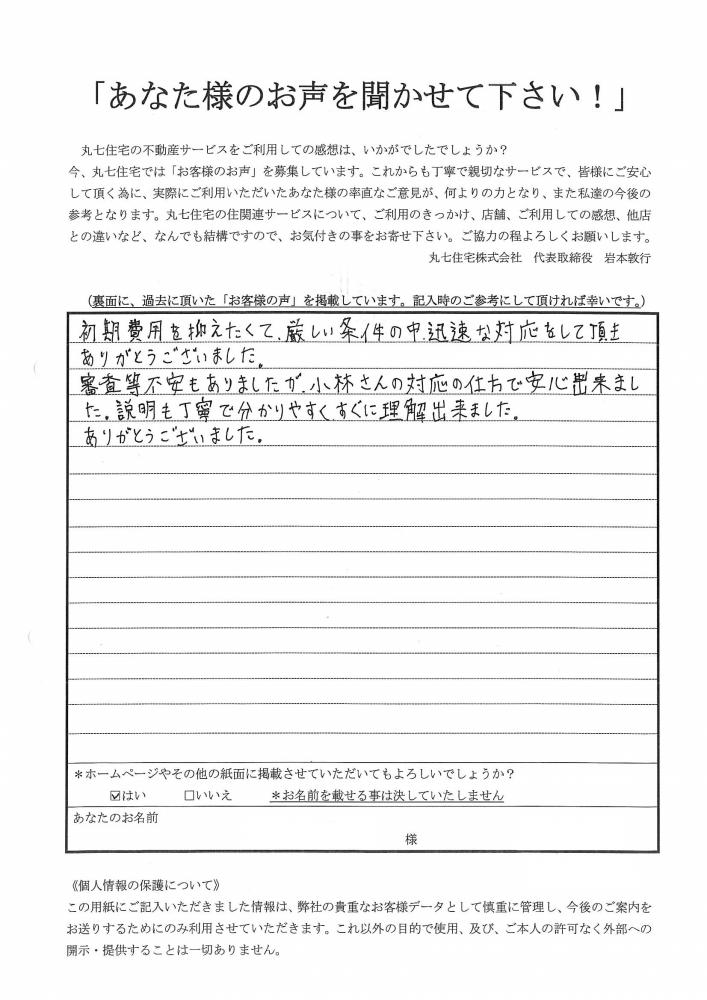 「あなた様のお声を聞かせて下さい！」
丸七住宅の不動産サービスをご利用しての感想は、いかがでしたでしょうか？
今、丸七住宅では「お客様のお声」を募集しています。これからも丁寧で親切なサービスで、皆様にご安心
して頂く為に、実際にご利用いただいたあなた様の率直なご意見が、何よりの力となり、また私達の今後の
参考となります。丸七住宅の住関連サービスについて、ご利用のきっかけ、店舗、ご利用しての感想、他店
との違いなど、なんでも結構ですので、お気付きの事をお寄せ下さい。ご協力の程よろしくお願いします。
丸七住宅株式会社　代表取締役　岩本敦行
（裏面に、過去に頂いた「お客様の声」を掲載しています。記入時のご参考にして頂ければ幸いです。）
初期費用を抑えたくて、厳しい条件の中、迅速な対応をして頂き
ありがとうございました。
審査等不安もありましたが、小林さんの対応の仕方で安心出来まし
た。説明も丁寧で分かりやすくすぐに理解出来ました。
ありがとうございました。
＊ホームページやその他の紙面に掲載させていただいてもよろしいでしょうか？
☑はい　□いいえ　＊お名前を載せる事は決していたしません
あなたのお名前
様
《個人情報の保護について》
この用紙にご記入いただきました情報は、弊社の貴重なお客様データとして慎重に管理し、今後のご案内を
お送りするためにのみ利用させていただきます。これ以外の目的で使用、及び、ご本人の許可なく外部への
開示・提供することは一切ありません。